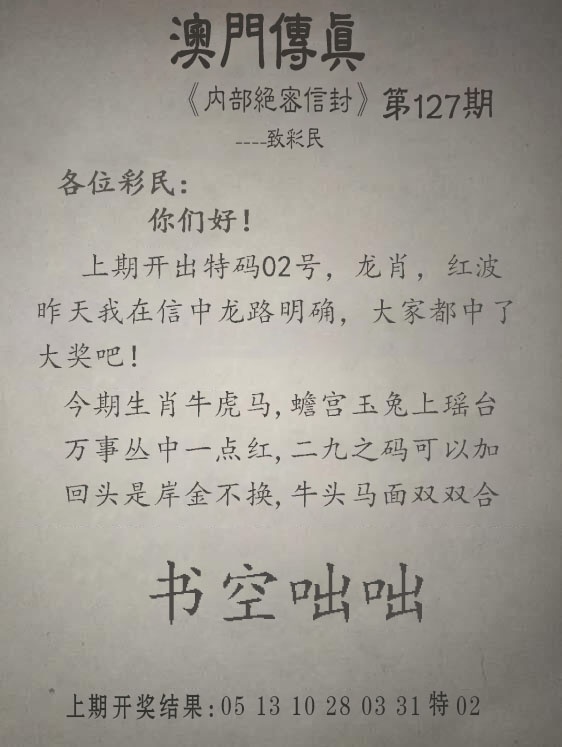 澳門傳眞
《内部絕密信封》第127期
----致彩民
各位彩民：
你们好！
上期开出特码02号，龙肖，红波
昨天我在信中龙路明确，大家都中了
大奖吧！
今期生肖牛虎马,蟾宫玉兔上瑶台
万事丛中一点红,二九之码可以加
回头是岸金不换,牛头马面双双合
书空咄咄
上期开奖结果:05 13 10 28 03 31 特 02